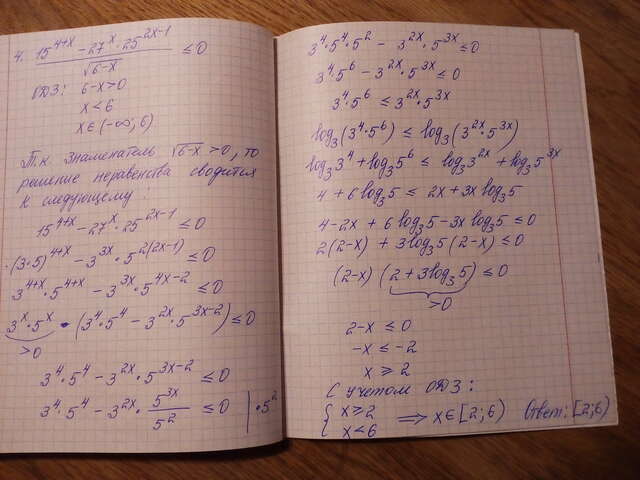 4. (15^{4+x} - 27^x · 25^{2x-1}) / √(6-x) ≤ 0
ОДЗ: 6-x > 0
x < 6
x ∈ (-∞; 6)
Т.к знаменатель √(6-x) > 0, то
решение неравенства сводится
к следующему:
15^{4+x} - 27^x · 25^{2x-1} ≤ 0
(3·5)^{4+x} - 3^{3x} · 5^{2(2x-1)} ≤ 0
3^{4+x} · 5^{4+x} - 3^{3x} · 5^{4x-2} ≤ 0
3^x · 5^x · (3^4 · 5^4 - 3^{2x} · 5^{3x-2}) ≤ 0
> 0
3^4 · 5^4 - 3^{2x} · 5^{3x-2} ≤ 0
3^4 · 5^4 - 3^{2x} · 5^{3x}/5^2 ≤ 0 | · 5^2
3^4 · 5^4 · 5^2 - 3^{2x} · 5^{3x} ≤ 0
3^4 · 5^6 - 3^{2x} · 5^{3x} ≤ 0
3^4 · 5^6 ≤ 3^{2x} · 5^{3x}
log_3(3^4 · 5^6) ≤ log_3(3^{2x} · 5^{3x})
log_3 3^4 + log_3 5^6 ≤ log_3 3^{2x} + log_3 5^{3x}
4 + 6 log_3 5 ≤ 2x + 3x log_3 5
4 - 2x + 6 log_3 5 - 3x log_3 5 ≤ 0
2(2-x) + 3 log_3 5 (2-x) ≤ 0
(2-x) (2 + 3 log_3 5) ≤ 0
> 0
2-x ≤ 0
-x ≤ -2
x ≥ 2
С учетом ОДЗ:
{ x ≥ 2
x < 6 ⟹ x ∈ [2; 6) Ответ: [2; 6)